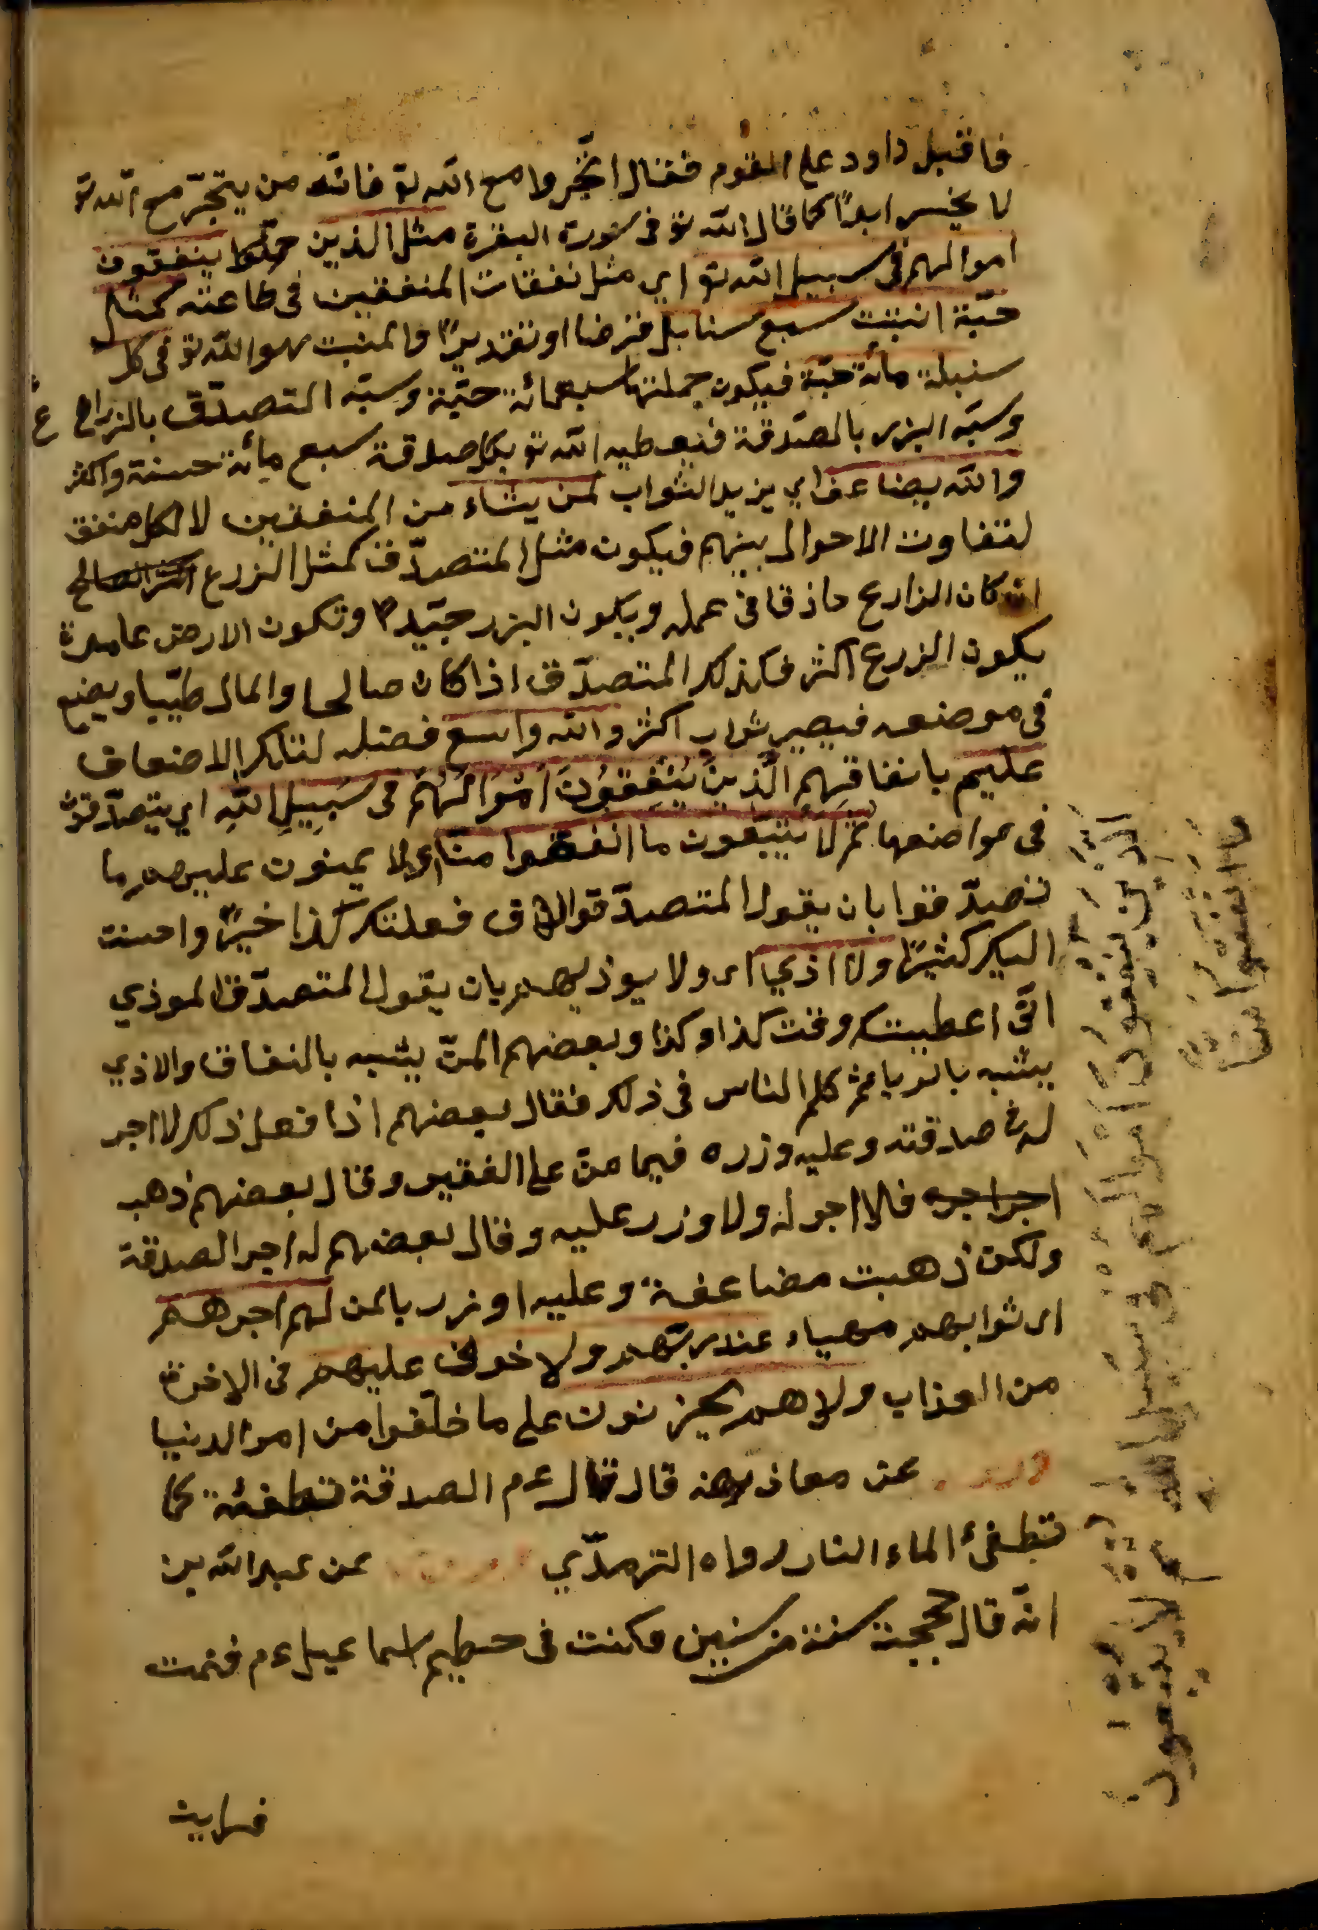 فاقبل داود على القوم فقال اتّجروا مع الله تو فانّه من يتجّر مع الله تو
لا يخسر ابدًا كما قال الله تو فى سورة البقرة مثل الذين ينفقون
اموالهم فى سبيل الله تو اي مثل نفقات المنفقين فى طاعته كمثل
حبّة انبتت سبع سنابل فرضا او تقديرًا والمنبت هو الله تو فى كل
سنبلة مائة حبّة فيكون جملتها سبعمائة حبّة وشبّه المتصدّق بالزراع
وشبّه البزر بالصّدقة فيعطيه الله تو بكل صدقة سبع مائة حسنة واكثر
والله يضاعف اي يزيد الثواب لمن يشاء من المنفقين لا لكل منفق
لتفاوت الاحوال بينهم فيكون مثل المتصدّق كمثل الزرع
ان كان الزارع حاذقا فى عمله ويكون البزر جيّدا وتكون الارض عامرة
يكون الزرع اكثر فكذلك المتصدّق اذا كان صالحا والمال طيّبا ويضع
فى موضعه فيصير ثواب اكثر والله واسع فضله لتلك الاضعاف
عليم بانفاقهم الَّذِينَ يُنْفِقُونَ اَمْوَالَهُمْ فى سَبِيلِ اللهِ اي يتصدّقون
فى مواضعها ثم لا يتبعون ما انفقوا منّا اي لا يمنون عليهم بما
تصدّقوا بان يقول المتصدّق فعلتك كذا خيرًا واحسنت
اليك كثيرًا ولا اذي اى ولا يوذيهم بان يقول المتصدّق الموذي
انّى اعطيتك وقت كذا وكذا وبعضهم المنّ يشبه بالنفاق والاذي
يشبه بالربا ثم كلم الناس فى ذلك فقال بعضهم اذا فعل ذلك لا اجر
له فى صدقته وعليه وزره فيما منّ على الفقير وقال بعضهم ذهب
اجر اجره فلا اجر له ولا وزر عليه وقال بعضهم له اجر الصدقة
ولكن ذهبت مضاعفة وعليه اوزر بالمن لهم اجرهم
اى ثوابهم مهياء عند ربّهم ولا خوف عليهم فى الاخرة
من العذاب ولا هم يحزنون على ما خلّفوا من امر الدنيا
عن معاذ رضه قال قال ءم الصدقة تطفئ كما
تطفئ الماء النار رواه الترمذّي عن عبد الله بن
انّه قال حججت سنة من سنين فكنت فى حطيم اسماعيل ءم فنمت
فرايت
الَّذِينَ يُنْفِقُونَ اَمْوَالَهُمْ فى سَبِيلِ اللهِ ثُمَّ لَا يُتْبِعُونَ
مَا اَنْفَقُوا مَنًّا